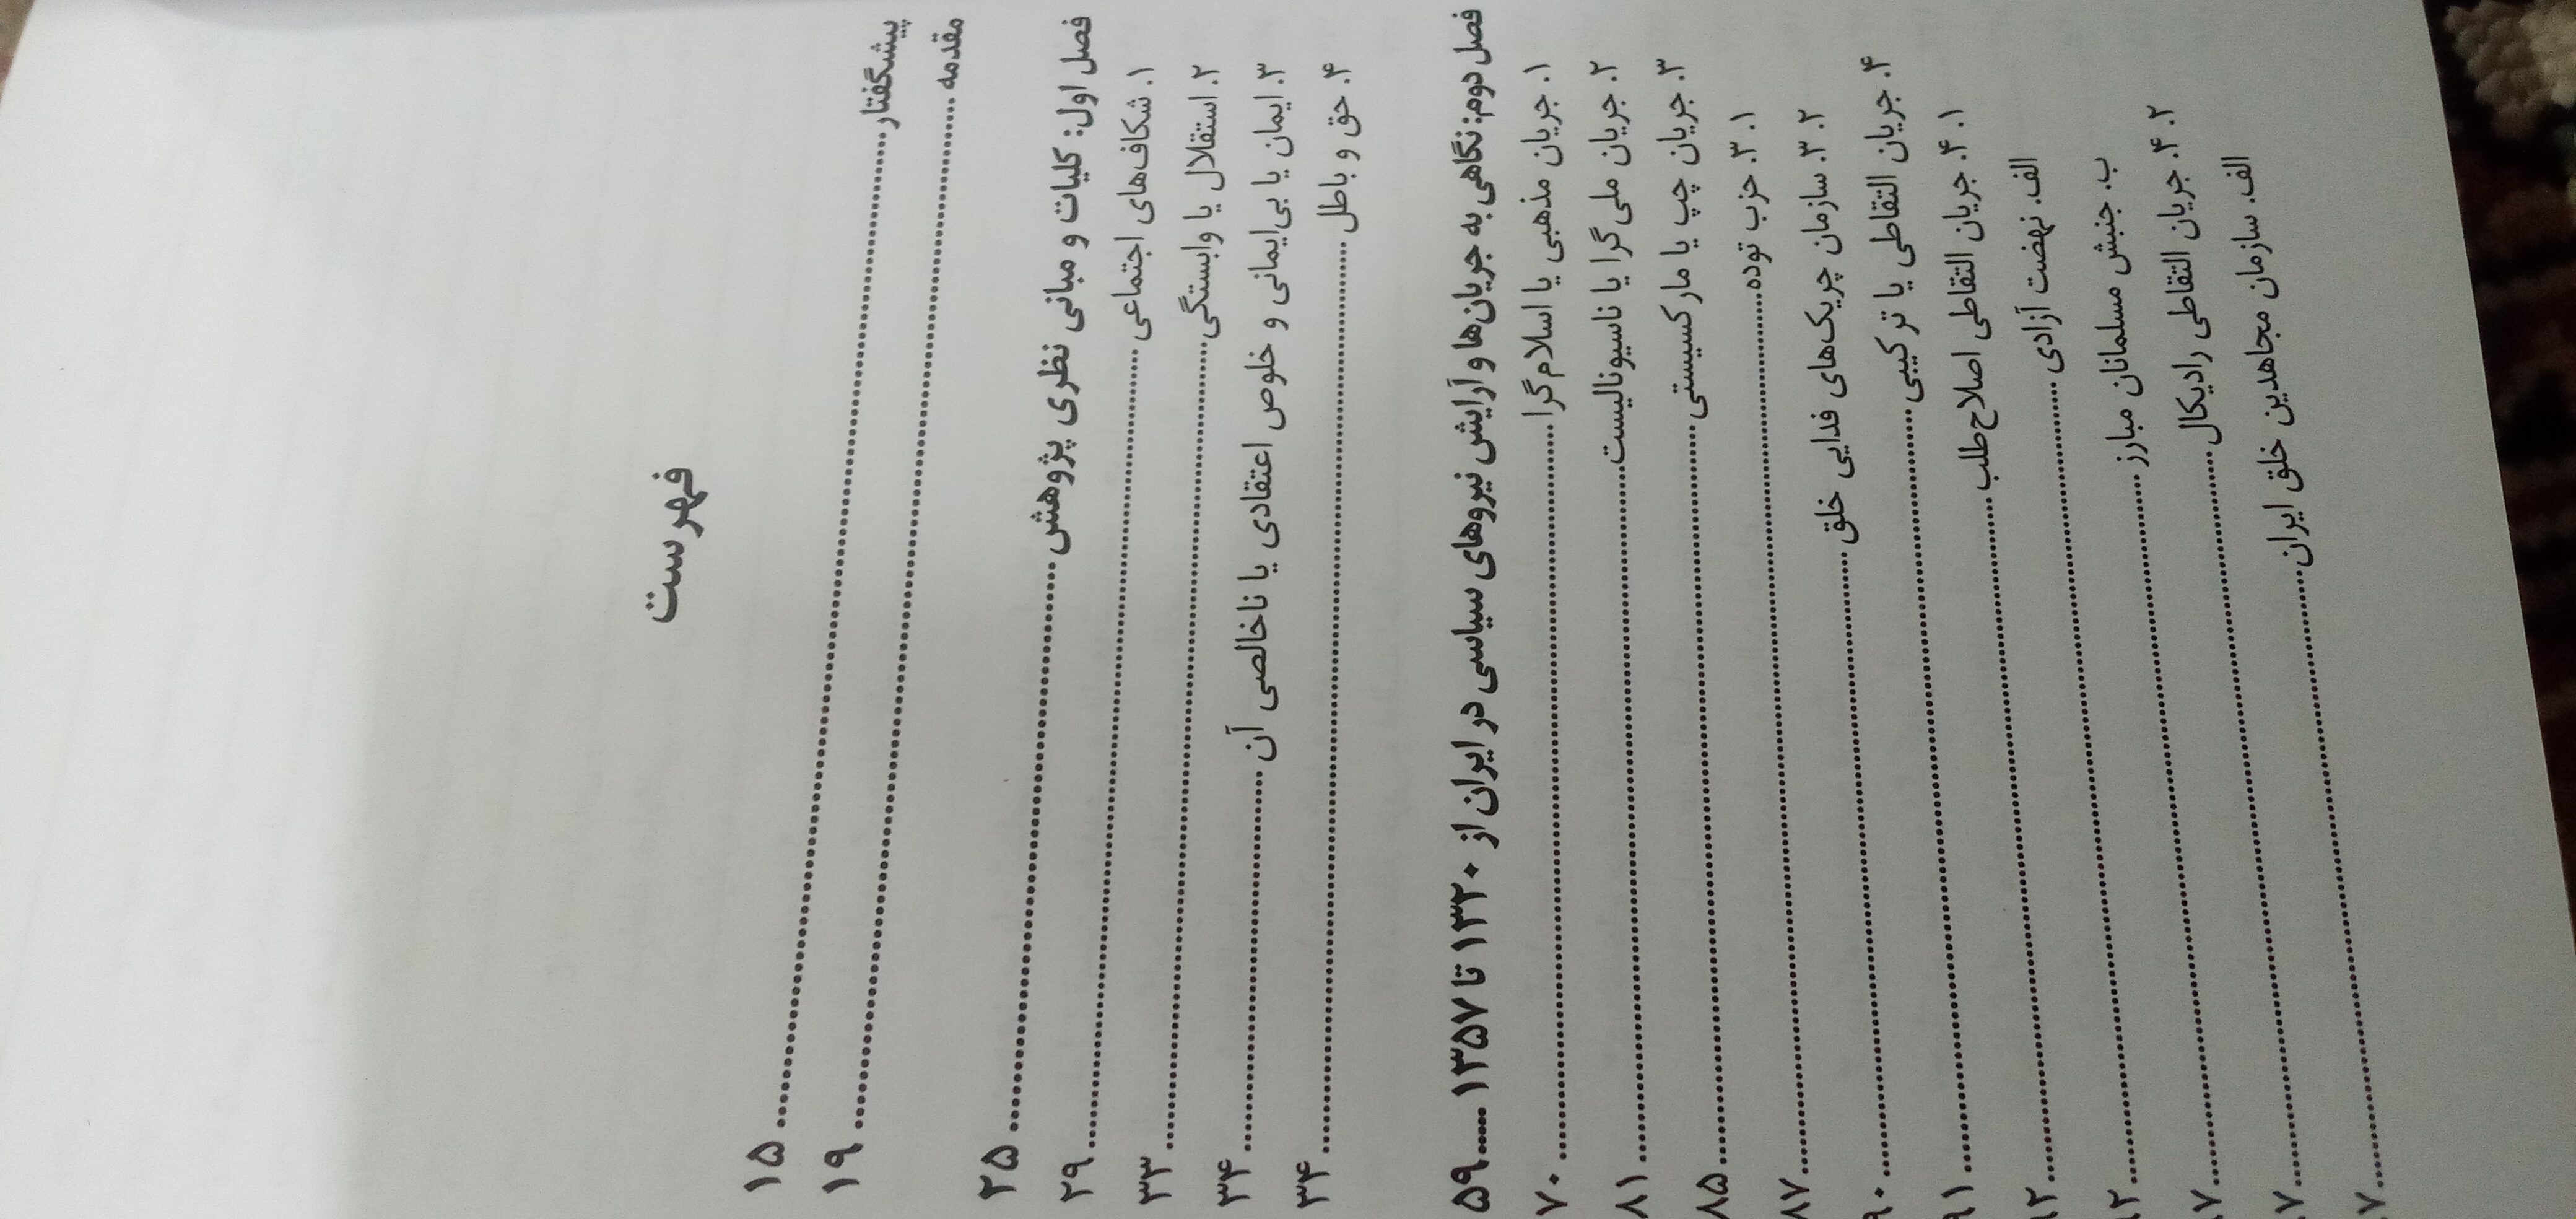 فهرست
پیشگفتار ........ ۱۵
مقدمه ........ ۱۹
فصل اول: کلیات و مبانی نظری پژوهش ........ ۲۵
۱. شکاف‌های اجتماعی ........ ۲۹
۲. استقلال یا وابستگی ........ ۳۳
۳. ایمان یا بی‌ایمانی و خلوص اعتقادی یا ناخالصی آن ........ ۳۴
۴. حق و باطل ........ ۳۴
فصل دوم: نگاهی به جریان‌ها و آرایش نیروهای سیاسی در ایران از ۱۳۲۰ تا ۱۳۵۷ ..... ۵۹
۱. جریان مذهبی یا اسلام‌گرا ........ ۷۰
۲. جریان ملی‌گرا یا ناسیونالیست ........ ۸۱
۳. جریان چپ یا مارکسیستی ........ ۸۵
۱. ۳. حزب توده ........ ۸۷
۲. ۳. سازمان چریک‌های فدایی خلق ........ ۹۰
۴. جریان التقاطی یا ترکیبی ........ ۹۱
۱. ۴. جریان التقاطی اصلاح‌طلب ........
الف. نهضت آزادی ........
ب. جنبش مسلمانان مبارز ........
۲. ۴. جریان التقاطی رادیکال ........
الف. سازمان مجاهدین خلق ایران ........